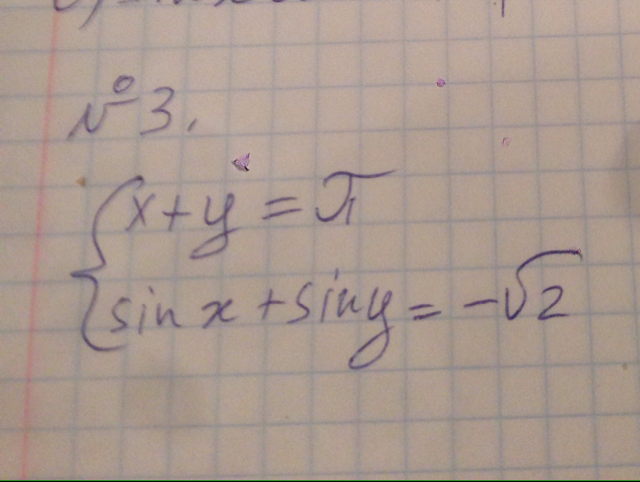 №3.
x+y=π
sin x+siny=-√2